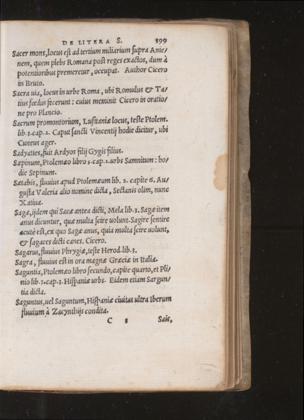 DE LITERA S. 399
Sacer mons, locus est ad tertium miliarium supra Anie-
nem, quem plebs Romana post reges exactos, dum à
potentioribus premeretur, occupat. Author Cicero
in Bruto.
Sacra uia, locus in urbe Roma, ubi Romulus & Ta-
tius fœdus fecerunt: cuius meminit Cicero in oratio-
ne pro Plancio.
Sacrum promontorium, Lusitaniæ locus, teste Ptolem.
lib.2.cap.2. Caput sancti Vincentij hodie dicitur, ubi
Cuneus ager.
Sadyattes, fuit Ardyos filij Gygis filius.
Sæpinum, Ptolemæo libro 3.cap.1.urbs Samnitum: ho-
die Sepinum.
Sætabis, fluuius apud Ptolemæum lib. 2. capite 6. Au-
gusta Valeria alio nomine dicta, Sectanis olim, nunc
Xatiua.
Sagæ, ijdem qui Sacæ antea dicti, Mela lib.3. Sagæ item
anus dicuntur, quæ multa scire uolunt. Sagire sentire
acutè est, ex quo Sagæ anus, quia multa scire uolunt,
& sagaces dicti canes. Cicero.
Sagarus, fluuius Phrygiæ, teste Herod.lib.5.
Sagra, fluuius est in ora magnæ Græciæ in Italia.
Saguntia, Ptolemæo libro secundo, capite quarto, et Pli-
nio lib.3.cap.1. Hispaniæ urbs. Eidem etiam Sargun-
tia dicta.
Saguntus, uel Saguntum, Hispaniæ ciuitas ultra Iberum
fluuium à Zacynthijs condita.
C 8 Saie,